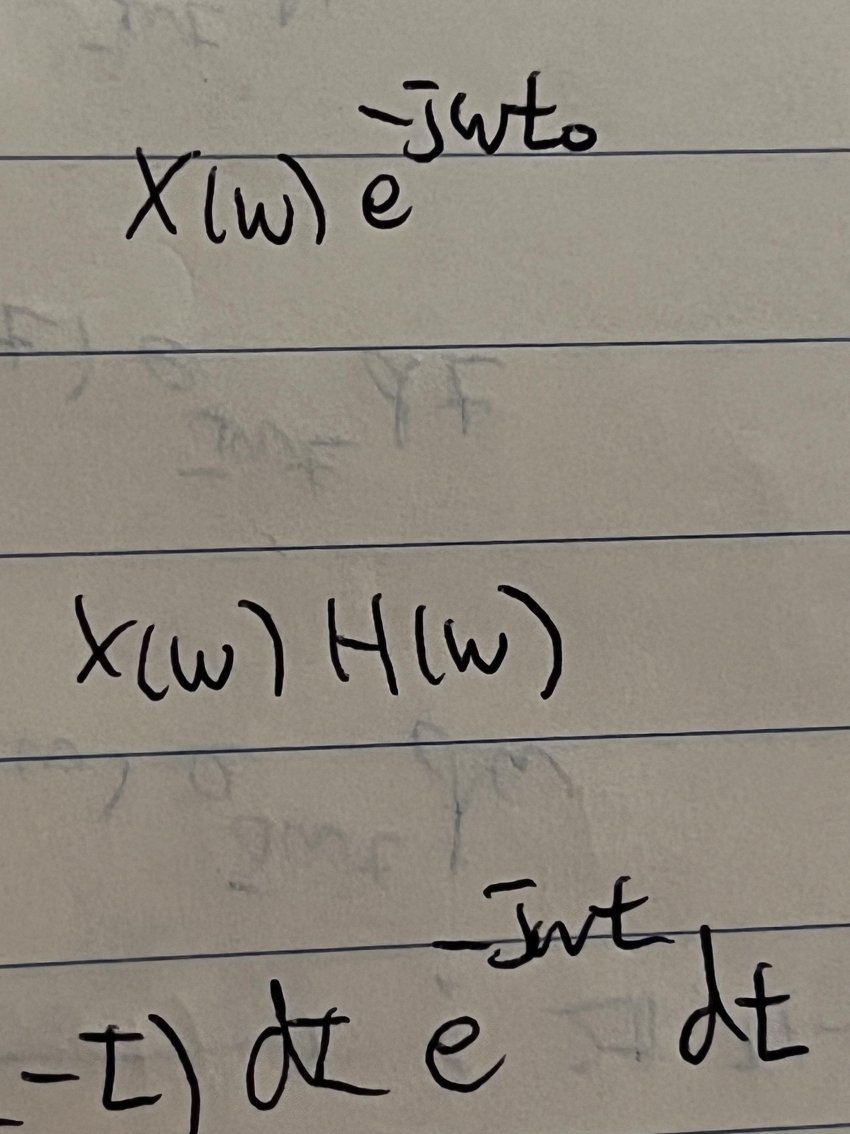 X(w) e^{-jwt₀}
X(w) H(w)
-τ) dτ e^{-jwt} dt